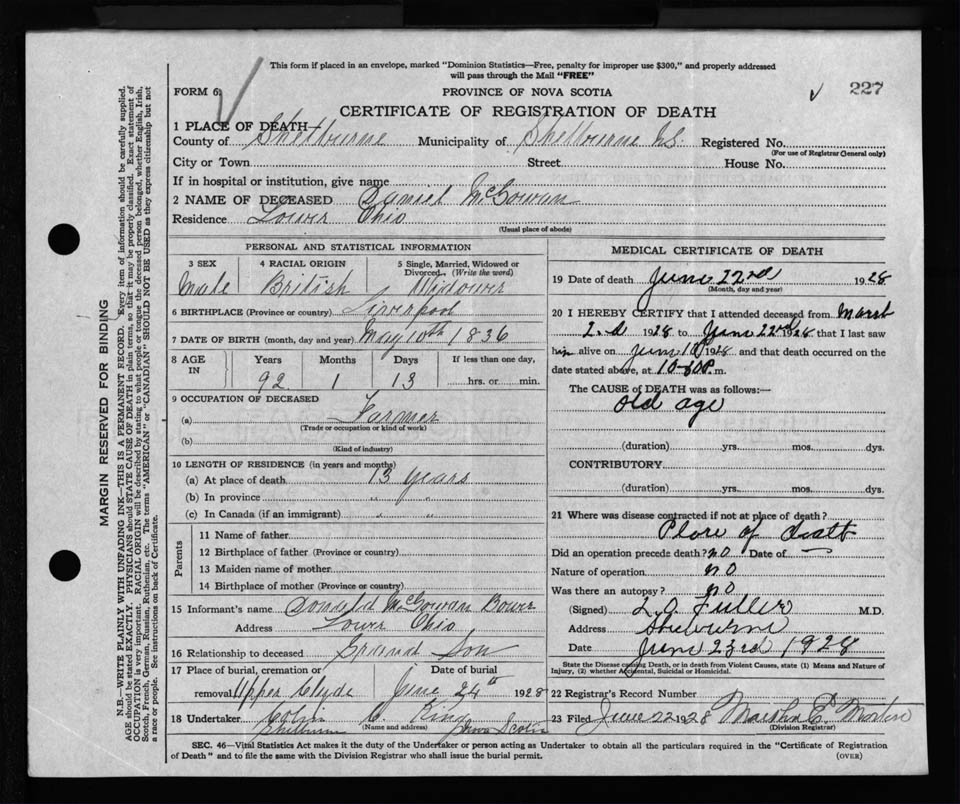 This form if placed in an envelope, marked "Dominion Statistics—Free, penalty for improper use $300," and properly addressed
will pass through the Mail "FREE"
FORM 6.
PROVINCE OF NOVA SCOTIA
227
CERTIFICATE OF REGISTRATION OF DEATH
1 PLACE OF DEATH
County of Shelburne Municipality of Shelburne N.S. Registered No.
(For use of Registrar General only)
City or Town Street House No.
If in hospital or institution, give name
2 NAME OF DECEASED Daniel McGowan
Residence Lower Ohio
(Usual place of abode)
PERSONAL AND STATISTICAL INFORMATION
3 SEX 4 RACIAL ORIGIN 5 Single, Married, Widowed or
Divorced. (Write the word)
Male British Widower
6 BIRTHPLACE (Province or country) Liverpool
7 DATE OF BIRTH (month, day and year) May 10th 1836
8 AGE IN Years Months Days If less than one day,
92 1 13 hrs. or min.
9 OCCUPATION OF DECEASED
(a) Farmer
(Trade or occupation or kind of work)
(b)
(Kind of industry)
10 LENGTH OF RESIDENCE (in years and months)
(a) At place of death 13 years
(b) In province " "
(c) In Canada (if an immigrant) " "
Parents
11 Name of father
12 Birthplace of father (Province or country)
13 Maiden name of mother
14 Birthplace of mother (Province or country)
15 Informant's name Donald McGowan Bower
Address Lower Ohio
16 Relationship to deceased Grand Son
17 Place of burial, cremation or Date of burial
removal Upper Clyde June 24th 1928
18 Undertaker Colin C. King
(Name and address) Nova Scotia
MEDICAL CERTIFICATE OF DEATH
19 Date of death June 22nd 1928
(Month, day and year)
20 I HEREBY CERTIFY that I attended deceased from March
2.d 1928 to June 22nd 1928 that I last saw
him alive on June 1928 and that death occurred on the
date stated above, at P.m.
The CAUSE OF DEATH was as follows:—
Old age
(duration) yrs. mos. dys.
CONTRIBUTORY
(duration) yrs. mos. dys.
21 Where was disease contracted if not at place of death?
Place of death
Did an operation precede death? no Date of —
Nature of operation no
Was there an autopsy? no
(Signed) L.O. Fuller M.D.
Address Shelburne
Date June 23rd 1928
State the Disease causing Death, or in death from Violent Causes, state (1) Means and Nature of
Injury, (2) whether Accidental, Suicidal or Homicidal.
22 Registrar's Record Number
23 Filed June 22 1928 Martha E.
(Division Registrar)
SEC. 46—Vital Statistics Act makes it the duty of the Undertaker or person acting as Undertaker to obtain all the particulars required in the "Certificate of Registration
of Death" and to file the same with the Division Registrar who shall issue the burial permit.
(OVER)
MARGIN RESERVED FOR BINDING
N.B.—WRITE PLAINLY WITH UNFADING INK—THIS IS A PERMANENT RECORD. Every item of information should be carefully supplied.
AGE should be stated EXACTLY. PHYSICIANS should STATE CAUSE OF DEATH in plain terms, so that it may be properly classified. Exact statement of
OCCUPATION is very important. RACIAL ORIGIN will be described by stating to what people or tongue the deceased person belonged, whether English, Irish,
Scotch, French, German, Russian, Ruthenian, etc. The terms "AMERICAN" or "CANADIAN" SHOULD NOT BE USED as they express citizenship but not
a race or people. See instructions on back of Certificate.